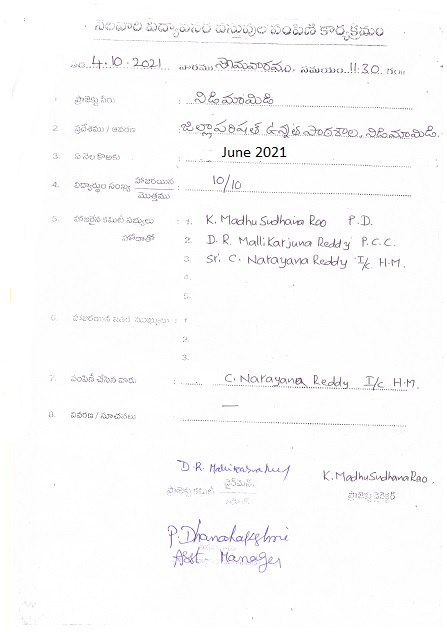 నెలవారి విద్యావసర వస్తువుల పంపిణి కార్యక్రమం
తేది 4.10.2021 వారము సోమవారము. సమయం 11:30 గం॥
1 ప్రాజెక్టు పేరు : నిడిమామిడి
2 ప్రదేశము / ఆవరణ : జిల్లాపరిషత్ ఉన్నత పాఠశాల, నిడిమామిడి.
3. ఏ నెల కొఱకు : June 2021
4. విద్యార్థుల సంఖ్య హాజరయిన / మొత్తము : 10/10
5. హాజరైన కమిటీ సభ్యులు : 1. K. MadhuSudhana Rao P.D.
హోదాతో 2. D. R. Mallikarjuna Reddy P.C.C.
3. Sri. C. Narayana Reddy I/c H.M.
4.
5.
6. హాజరయిన ఇతర ముఖ్యులు : 1
2.
3.
7. పంపిణీ చేసిన వారు : C. Narayana Reddy I/c H.M.
8. వివరణ / సూచనలు : —
D. R. Mallikarjuna Reddy K. MadhuSudhana Rao.
ప్రాజెక్టు కమిటీ ఛైర్మెన్ ప్రాజెక్టు డైరెక్టర్
P. Dhanalakshmi
Asst. Manager